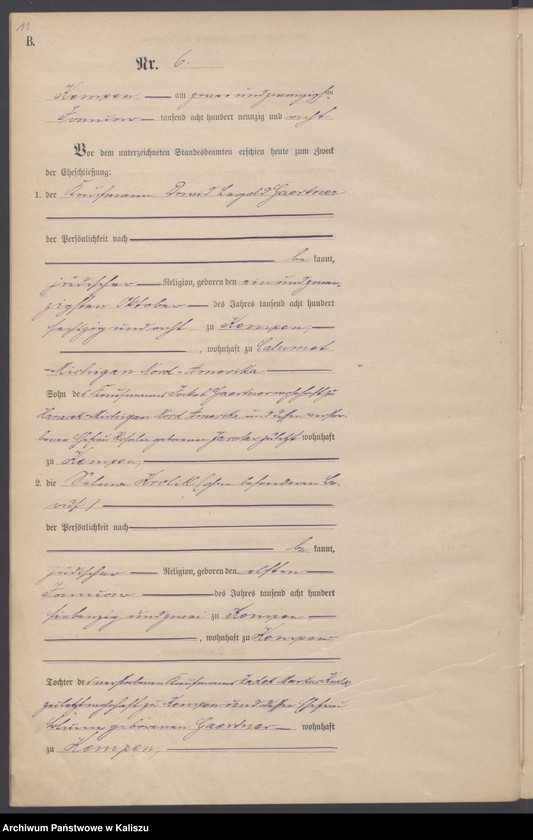 11
B.
Nr. 6.
Kempen, am zwei und zwanzigsten
Januar tausend acht hundert neunzig und acht
Vor dem unterzeichneten Standesbeamten erschien heute zum Zweck
der Eheschließung:
1. der Kaufmann David Gaertner
der Persönlichkeit nach
be kannt,
jüdischer Religion, geboren den ein und zwan-
zigsten Oktober des Jahres tausend acht hundert
sechszig und acht zu Kempen,
, wohnhaft zu Calumet
Michigan Nord-Amerika
Sohn des Kaufmanns Gaertner wohnhaft zu
Michigan Nord Amerika und dessen verstor-
benen Ehefrau geborenen zuletzt wohnhaft
zu Kempen,
2. die Selma Krolik (ohne besonderen Be-
ruf)
der Persönlichkeit nach
be kannt,
jüdischer Religion, geboren den elften
Januar des Jahres tausend acht hundert
siebenzig und zwei zu Kempen
, wohnhaft zu Kempen
Tochter des verstorbenen Kaufmanns Markus Krolik
zuletzt wohnhaft zu Kempen und dessen Ehefrau
geborenen Gaertner wohnhaft
zu Kempen,
Archiwum Państwowe w Kaliszu